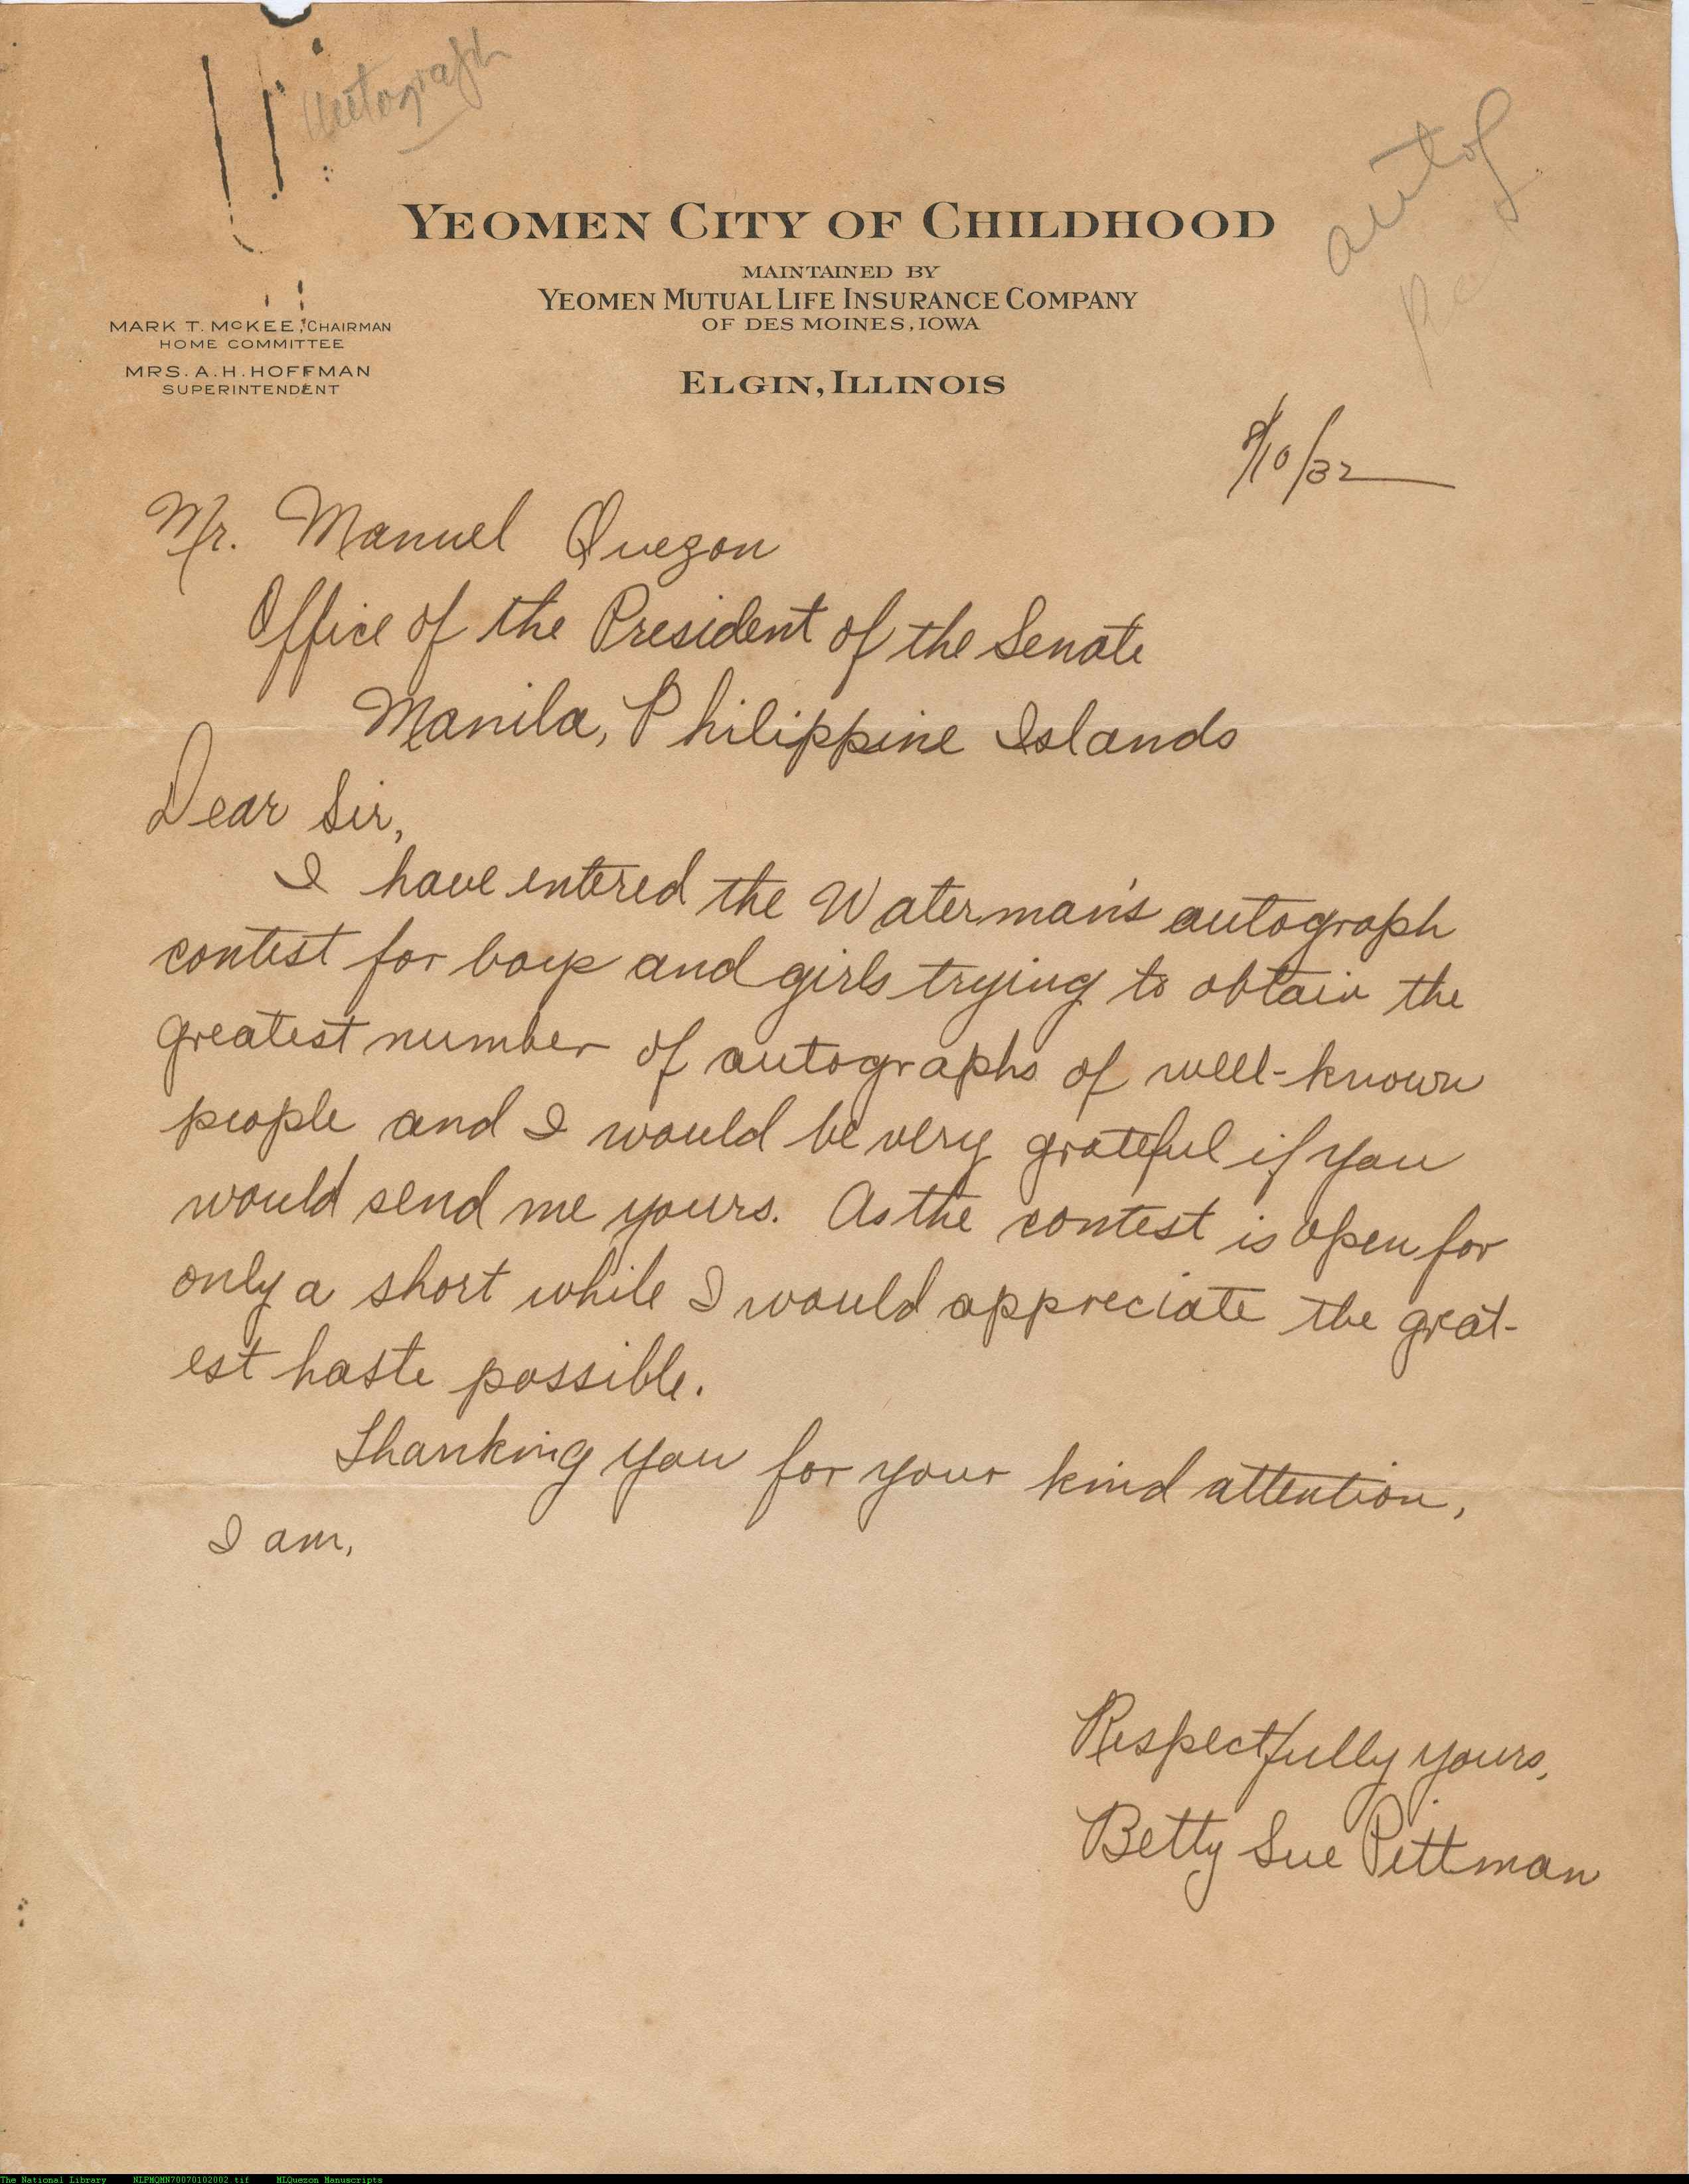 Autograph
autog
YEOMEN CITY OF CHILDHOOD
MAINTAINED BY
YEOMEN MUTUAL LIFE INSURANCE COMPANY
OF DES MOINES, IOWA
MARK T. McKEE, CHAIRMAN
HOME COMMITTEE
MRS. A. H. HOFFMAN
SUPERINTENDENT
ELGIN, ILLINOIS
8/10/32
Mr. Manuel Quezon
Office of the President of the Senate
Manila, Philippine Islands
Dear Sir,
I have entered the Waterman's autograph
contest for boys and girls trying to obtain the
greatest number of autographs of well-known
people and I would be very grateful if you
would send me yours. As the contest is open for
only a short while I would appreciate the great-
est haste possible.
Thanking you for your kind attention,
I am,
Respectfully yours,
Betty Sue Pittman
The National Library NLPMQMN70070102002.tif MLQuezon Manuscripts